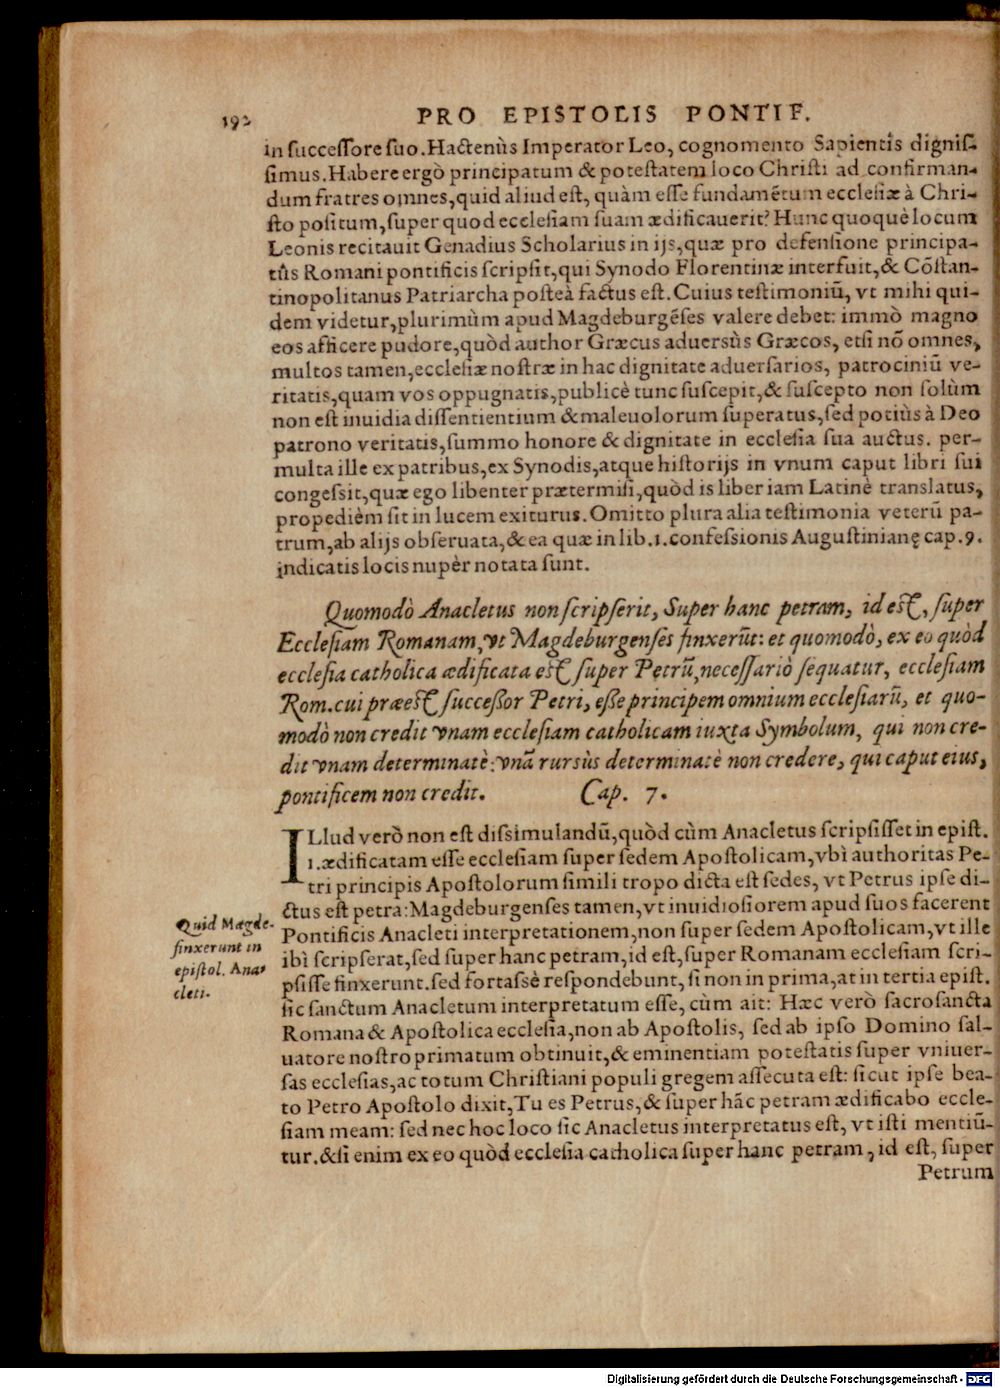 192
PRO EPISTOLIS PONTIF.
in ſucceſſore ſuo. Hactenùs Imperator Leo, cognomento Sapientis digniſ-
ſimus. Habere ergò principatum & poteſtatem loco Chriſti ad confirman-
dum fratres omnes, quid aliud eſt, quàm eſſe fundamẽtum eccleſiæ à Chri-
ſto poſitum, ſuper quod eccleſiam ſuam ædificauerit? Hunc quoquè locum
Leonis recitauit Genadius Scholarius in ijs, quæ pro defenſione principa-
tûs Romani pontificis ſcripſit, qui Synodo Florentinæ interfuit, & Cõſtan-
tinopolitanus Patriarcha poſteà factus eſt. Cuius teſtimoniũ, vt mihi qui-
dem videtur, plurimùm apud Magdeburgẽſes valere debet: immò magno
eos afficere pudore, quòd author Græcus aduersùs Græcos, etſi nõ omnes,
multos tamen, eccleſiæ noſtræ in hac dignitate aduerſarios, patrociniũ ve-
ritatis, quam vos oppugnatis, publicè tunc ſuſcepit, & ſuſcepto non ſolùm
non eſt inuidia diſſentientium & maleuolorum ſuperatus, ſed potiùs à Deo
patrono veritatis, ſummo honore & dignitate in eccleſia ſua auctus. per-
multa ille ex patribus, ex Synodis, atque hiſtorijs in vnum caput libri ſui
congeſsit, quæ ego libenter prætermiſi, quòd is liber iam Latinè translatus,
propedièm ſit in lucem exiturus. Omitto plura alia teſtimonia veterũ pa-
trum, ab alijs obſeruata, & ea quæ in lib. 1. confeſsionis Auguſtinianę cap. 9.
indicatis locis nupèr notata ſunt.
Quomodò Anacletus non ſcripſerit, Super hanc petram, id eſt, ſuper
Eccleſiam Romanam, vt Magdeburgenſes finxerũt: et quomodò, ex eo quòd
eccleſia catholica ædificata eſt ſuper Petrũ, neceſſariò ſequatur, eccleſiam
Rom. cui præeſt ſucceſſor Petri, eſſe principem omnium eccleſiarũ, et quo-
modò non credit vnam eccleſiam catholicam iuxta Symbolum, qui non cre-
dit vnam determinatè: vnã rursùs determinatè non credere, qui caput eius,
pontificem non credit. Cap. 7.
ILlud verò non eſt diſsimulandũ, quòd cùm Anacletus ſcripſiſſet in epiſt.
1. ædificatam eſſe eccleſiam ſuper ſedem Apoſtolicam, vbì authoritas Pe-
tri principis Apoſtolorum ſimili tropo dicta eſt ſedes, vt Petrus ipſe di-
ctus eſt petra: Magdeburgenſes tamen, vt inuidioſiorem apud ſuos facerent
Pontificis Anacleti interpretationem, non ſuper ſedem Apoſtolicam, vt ille
ibì ſcripſerat, ſed ſuper hanc petram, id eſt, ſuper Romanam eccleſiam ſcri-
pſiſſe finxerunt. ſed fortaſsè reſpondebunt, ſi non in prima, at in tertia epiſt.
ſic ſanctum Anacletum interpretatum eſſe, cùm ait: Hæc verò ſacroſancta
Romana & Apoſtolica eccleſia, non ab Apoſtolis, ſed ab ipſo Domino ſal-
uatore noſtro primatum obtinuit, & eminentiam poteſtatis ſuper vniuer-
ſas eccleſias, ac totum Chriſtiani populi gregem aſſecuta eſt: ſicut ipſe bea-
to Petro Apoſtolo dixit, Tu es Petrus, & ſuper hãc petram ædificabo eccle-
ſiam meam: ſed nec hoc loco ſic Anacletus interpretatus eſt, vt iſti mentiũ-
tur. & ſi enim ex eo quòd eccleſia catholica ſuper hanc petram, id eſt, ſuper
Petrum
Quid Magde-
finxerunt in
epiſtol. Ana-
cleti.
Digitalisierung gefördert durch die Deutsche Forschungsgemeinschaft - DFG